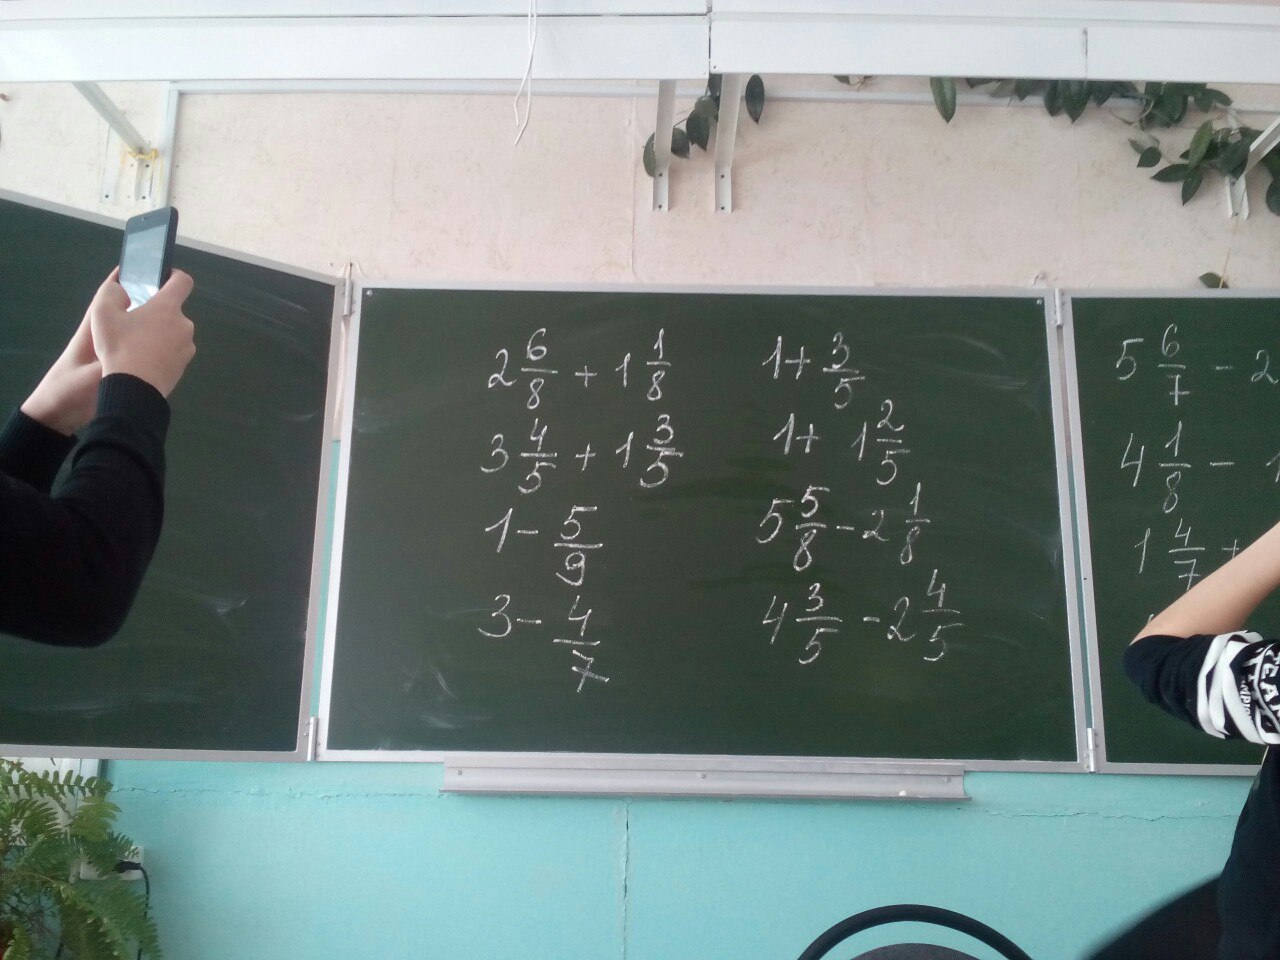 2 6/8 + 1 1/8
3 4/5 + 1 3/5
1 - 5/9
3 - 4/7
1 + 3/5
1 + 1 2/5
5 5/8 - 2 1/8
4 3/5 - 2 4/5
5 6/7 - 2
4 1/8 - 1
1 4/7 +
TEAM